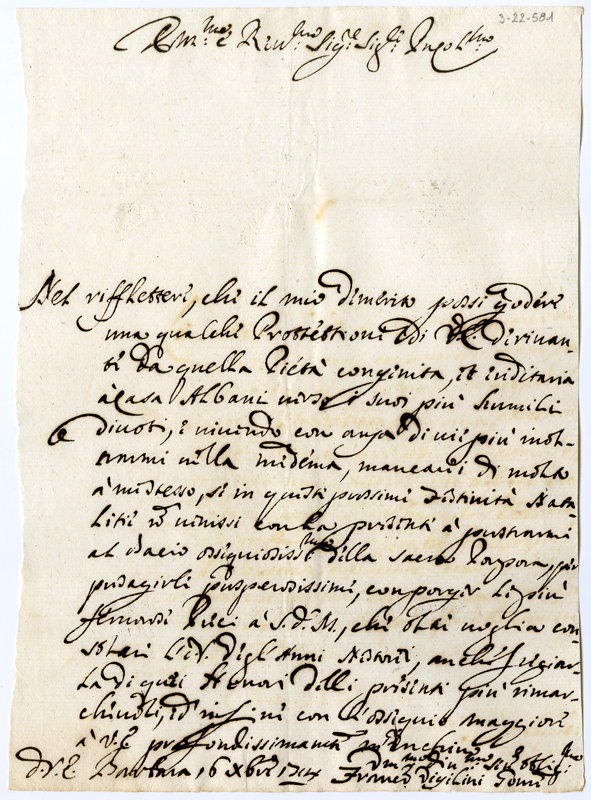 3-22-581
Em.mo e Rev.mo Sig.re Sig.re P'ron Col.mo
Nel riffletteri, che il mio dimerito possi godere
una qualche Prottettione di V.E. dirivan-
ti da quella Pietà congenita, et ereditaria
à Casa Albani verso i suoi più humili
divoti, e vivendo con ansa di vie più inol-
trarmi nella medema, mancarei di molto
à me stesso, se in questi prossimi Festività Nata-
litie non venissi con la presenti à prostrarmi
al bacio ossequiosiss.mo della sacra Porpora, per
presagirli prosperosissimi, con porger le più
fervorosi Preci à S.D.M., che
voglia con-
gl'Anni
la di quei Honori delli presenti più rimar-
chevoli, ed in fine con l'ossequio maggiore
à V.E. profondissimamente m'inchino
D V.E. Barbara, 6 Xbre 1714
Hum.mo Div.mo Ser.e Obblig.mo
Franc.o Vigilini